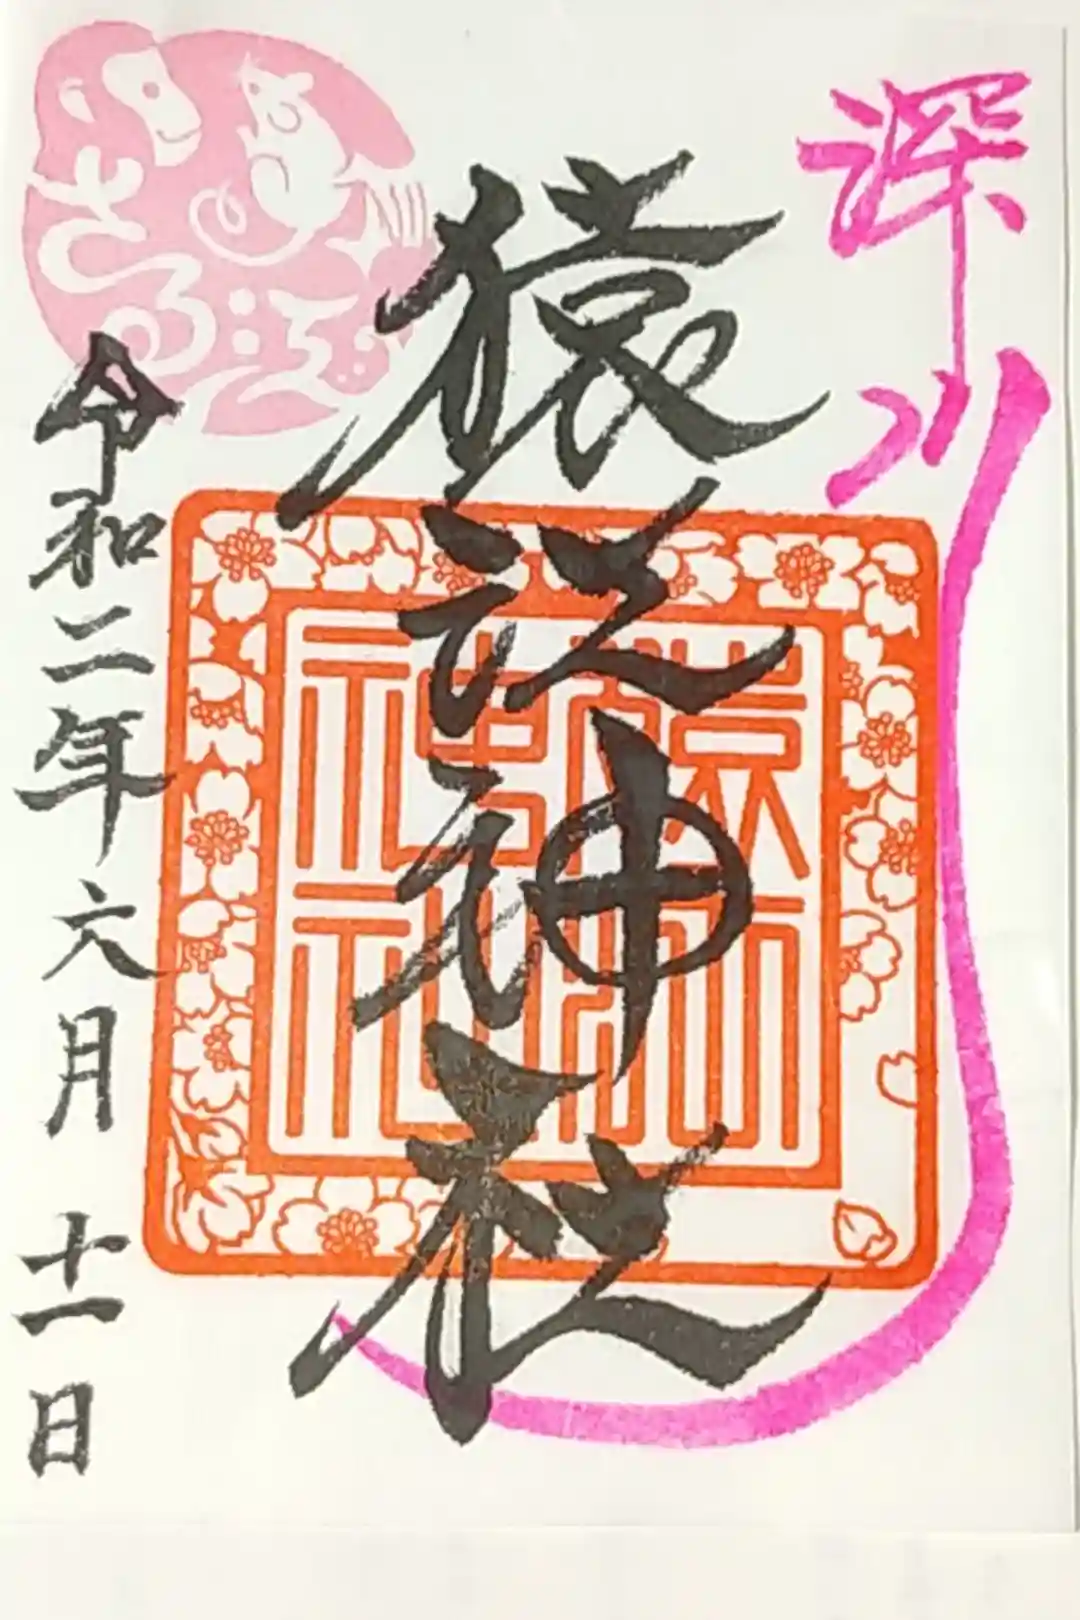 深川
猿江神社
令和二年六月十一日
さる江